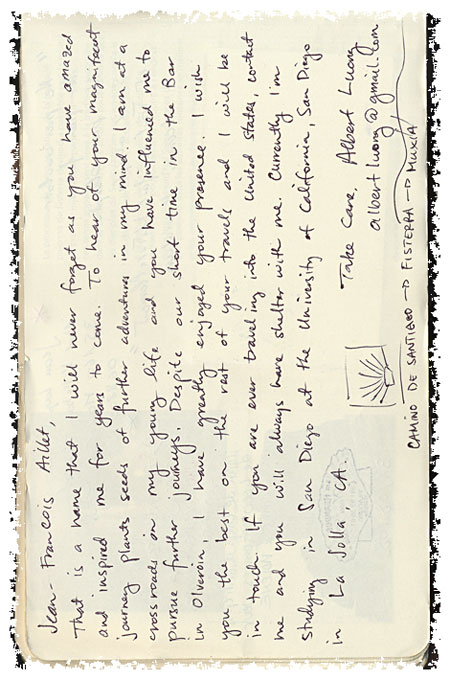 Jean-Francois Aillet,
That is a name that I will never forget as you have amazed
and inspired me for years to come. To hear of your magnificent
journey plants seeds of further adventures in my mind. I am at a
crossroads on my young life and you have influenced me to
pursue further journeys. Despite our short time in the Bar
in Olveroin, I have greatly enjoyed your presence. I wish
you the best on the rest of your travels and I will be
in touch. If you are ever traveling into the United States, contact
me and you will always have shelter with me. Currently I'm
studying in San Diego at the University of California, San Diego
in La Jolla, CA.
Take Care, Albert Luong
albertluong@gmail.com
CAMINO DE SANTIAGO → FISTERRA → MUXIA